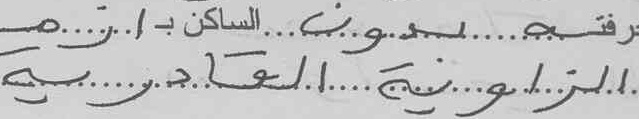 حرفته بدون الساكن بـ
الزاوية القادرية